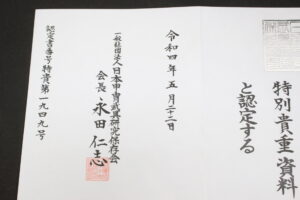 特別貴重資料
と認定する
令和四年五月二十二日
一般社団法人日本甲冑武具研究保存会
会長 永田仁志
認定書番号特貴第一九四九号